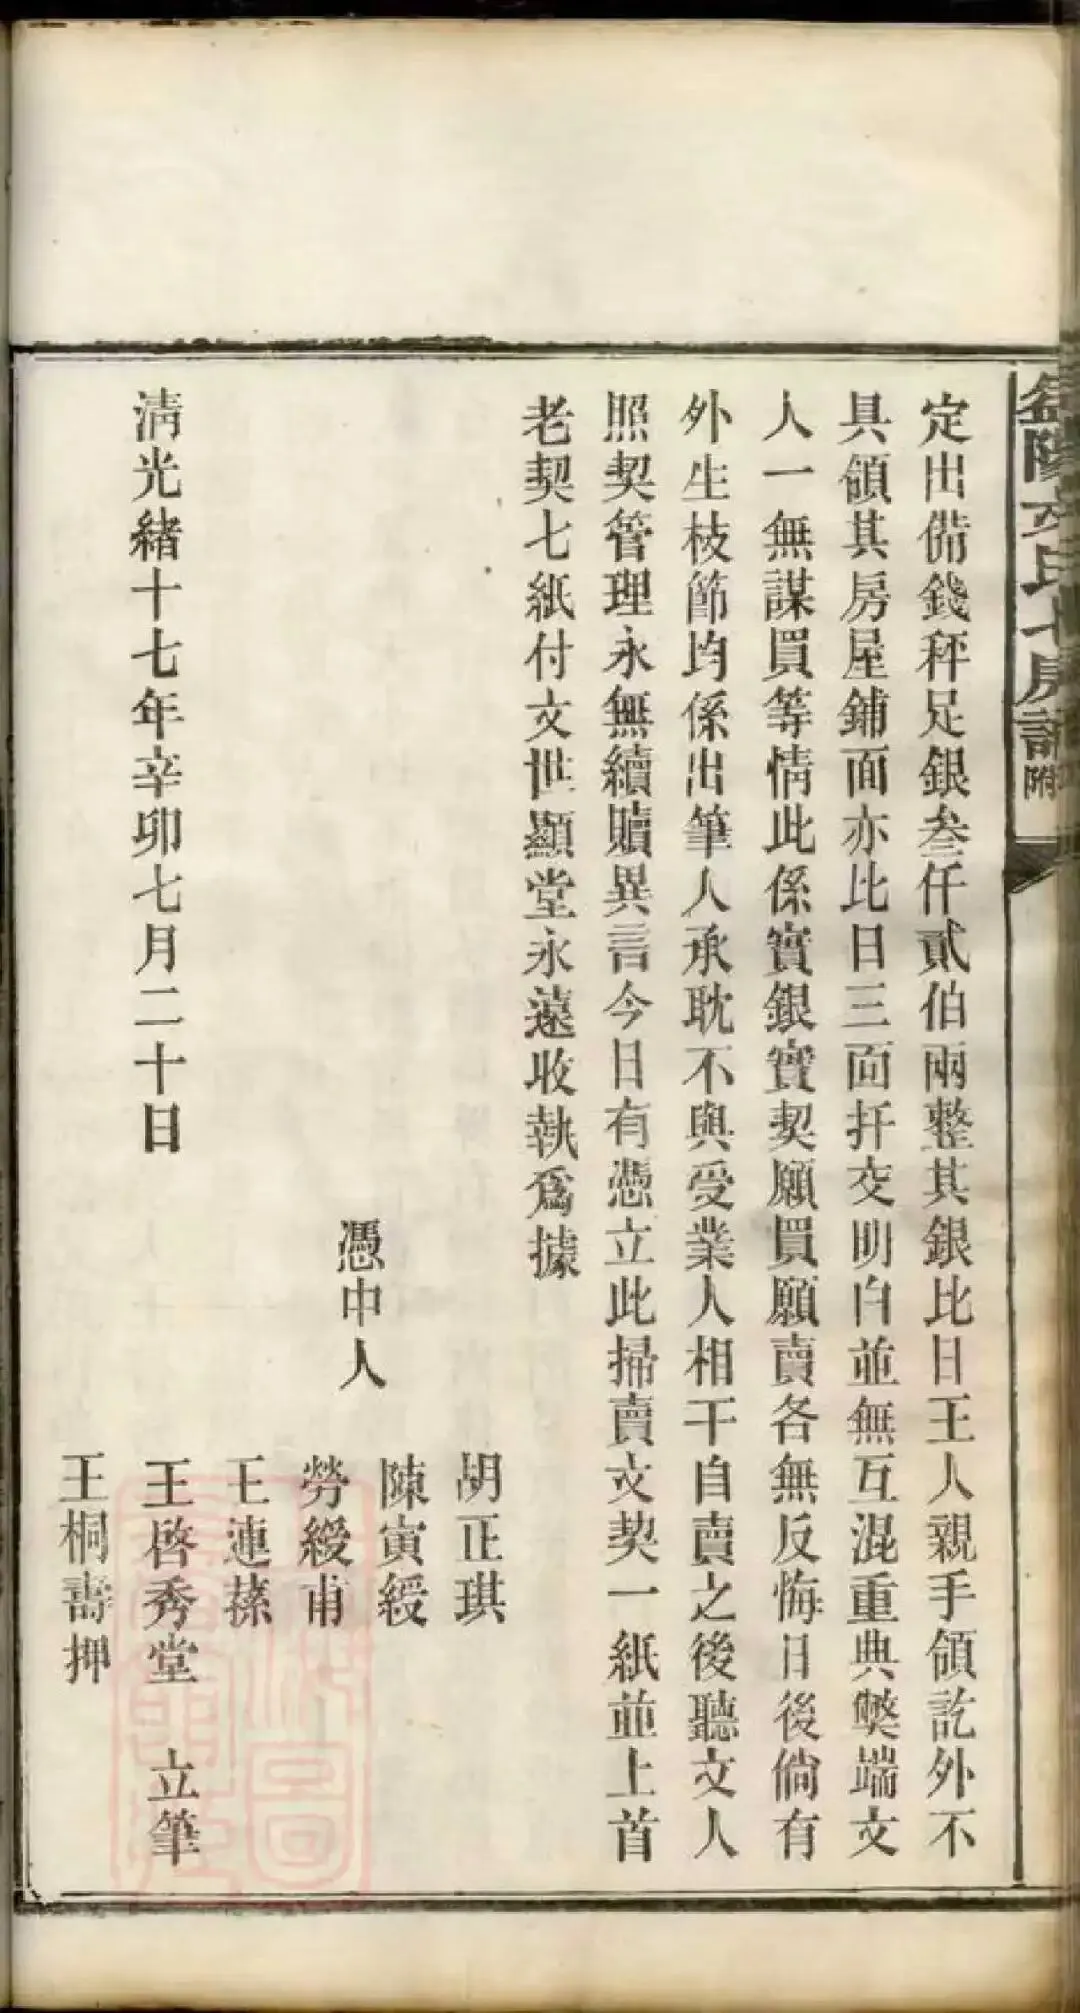 益陽文氏七房譜附
定出備錢秤足銀叁仟貳伯兩整其銀比日王人親手領訖外不
具領其房屋鋪面亦比日三面扦交明白並無互混重典獘端文
人一無謀買等情此係實銀實契願買願賣各無反悔日後倘有
外生枝節均係出筆人承耽不與受業人相干自賣之後聽文人
照契管理永無續贖異言今日有憑立此掃賣文契一紙並上首
老契七紙付文世顯堂永遠收執爲據
胡正琪
陳寅綬
憑中人 勞綬甫
王連蓀
清光緒十七年辛卯七月二十日 王啓秀堂 立筆
王桐壽押